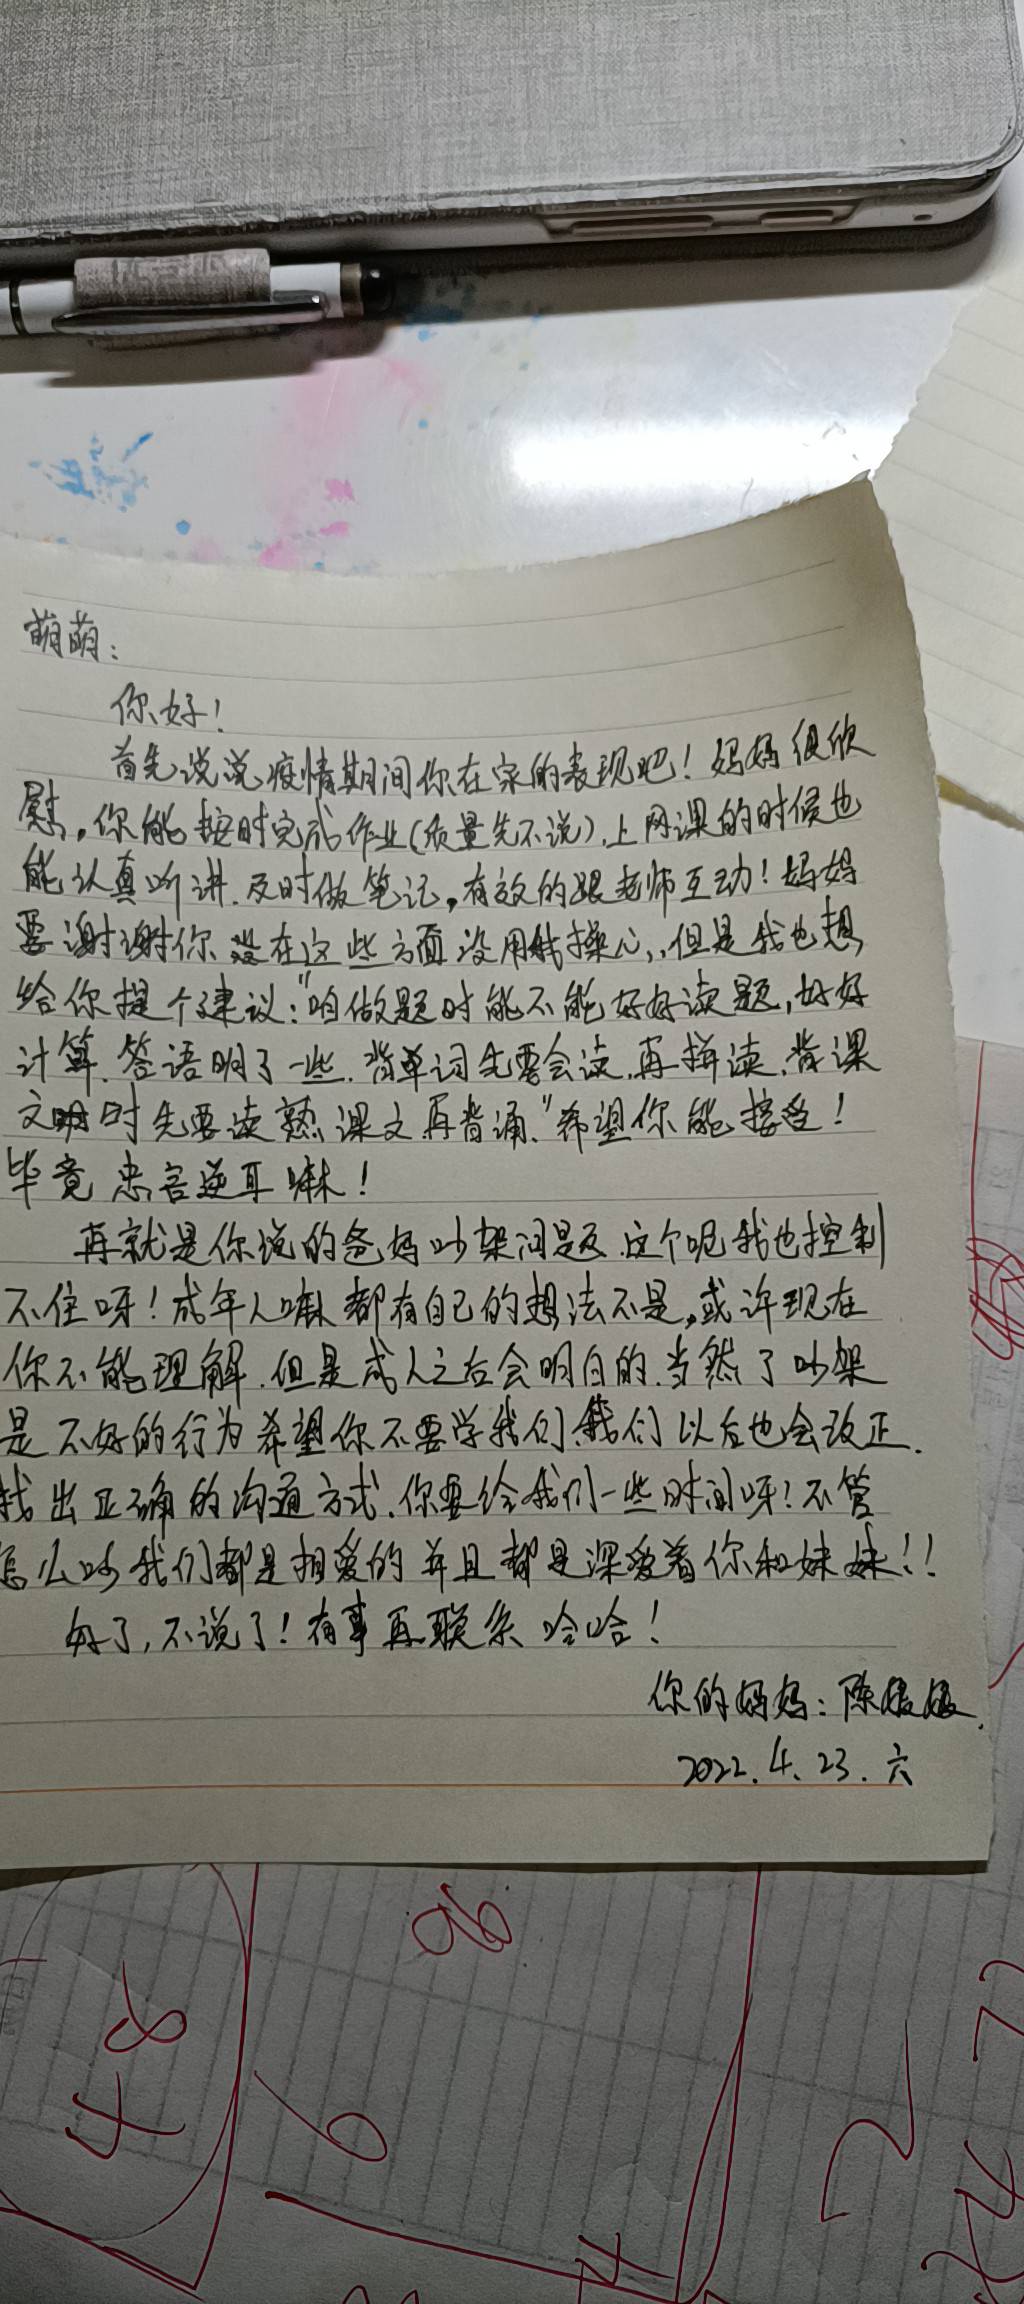 萌萌:
你好!
首先说说疫情期间你在家的表现吧! 妈妈很欣
慰,你能按时完成作业(质量先不说),上网课的时候也
能认真听讲.及时做笔记,有效的跟老师互动!妈妈
要谢谢你 在这些方面没用我操心,但是我也想
给你提个建议:"咱做题时能不能好好读题,好好
计算.答语明了一些.背单词先要会读,再拼读.背课
文时先要读熟课文再背诵."希望你能接受!
毕竟忠言逆耳嘛!
再就是你说的爸妈吵架问题.这个呢我也控制
不住呀!成年人嘛都有自己的想法不是,或许现在
你不能理解.但是成人之后会明白的.当然了吵架
是不好的行为希望你不要学我们.我们以后也会改正.
找出正确的沟通方式.你要给我们一些时间呀!不管
怎么吵我们都是相爱的并且都是深爱着你和妹妹!!
好了,不说了!有事再联系哈哈!
你的妈妈:陈
2022.4.23.六
98
48
6
2